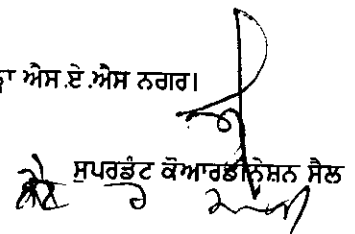 ਐਸ.ਏ.ਐਸ ਨਗਰ।
ਸੁਪਰਡੰਟ ਕੋਆਰਡੀਨੇਸ਼ਨ ਸੈਲ